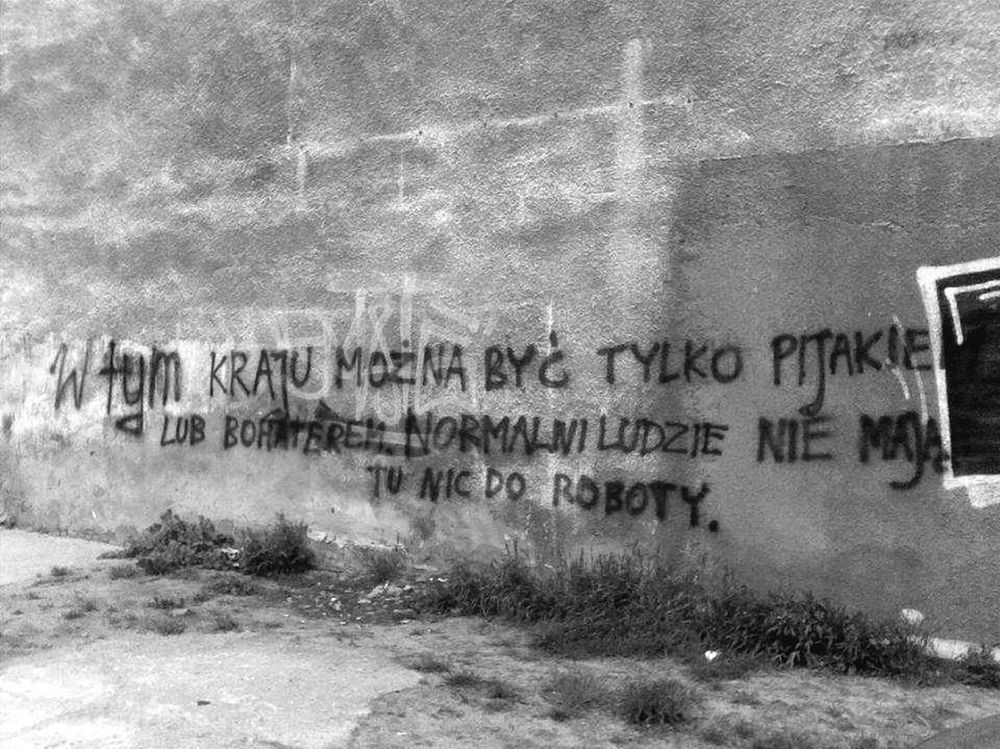 W tym KRAJU MOŻNA BYĆ TYLKO PIJAKIE
LUB BOHATEREM. NORMALNI LUDZIE NIE MAJĄ
TU NIC DO ROBOTY.